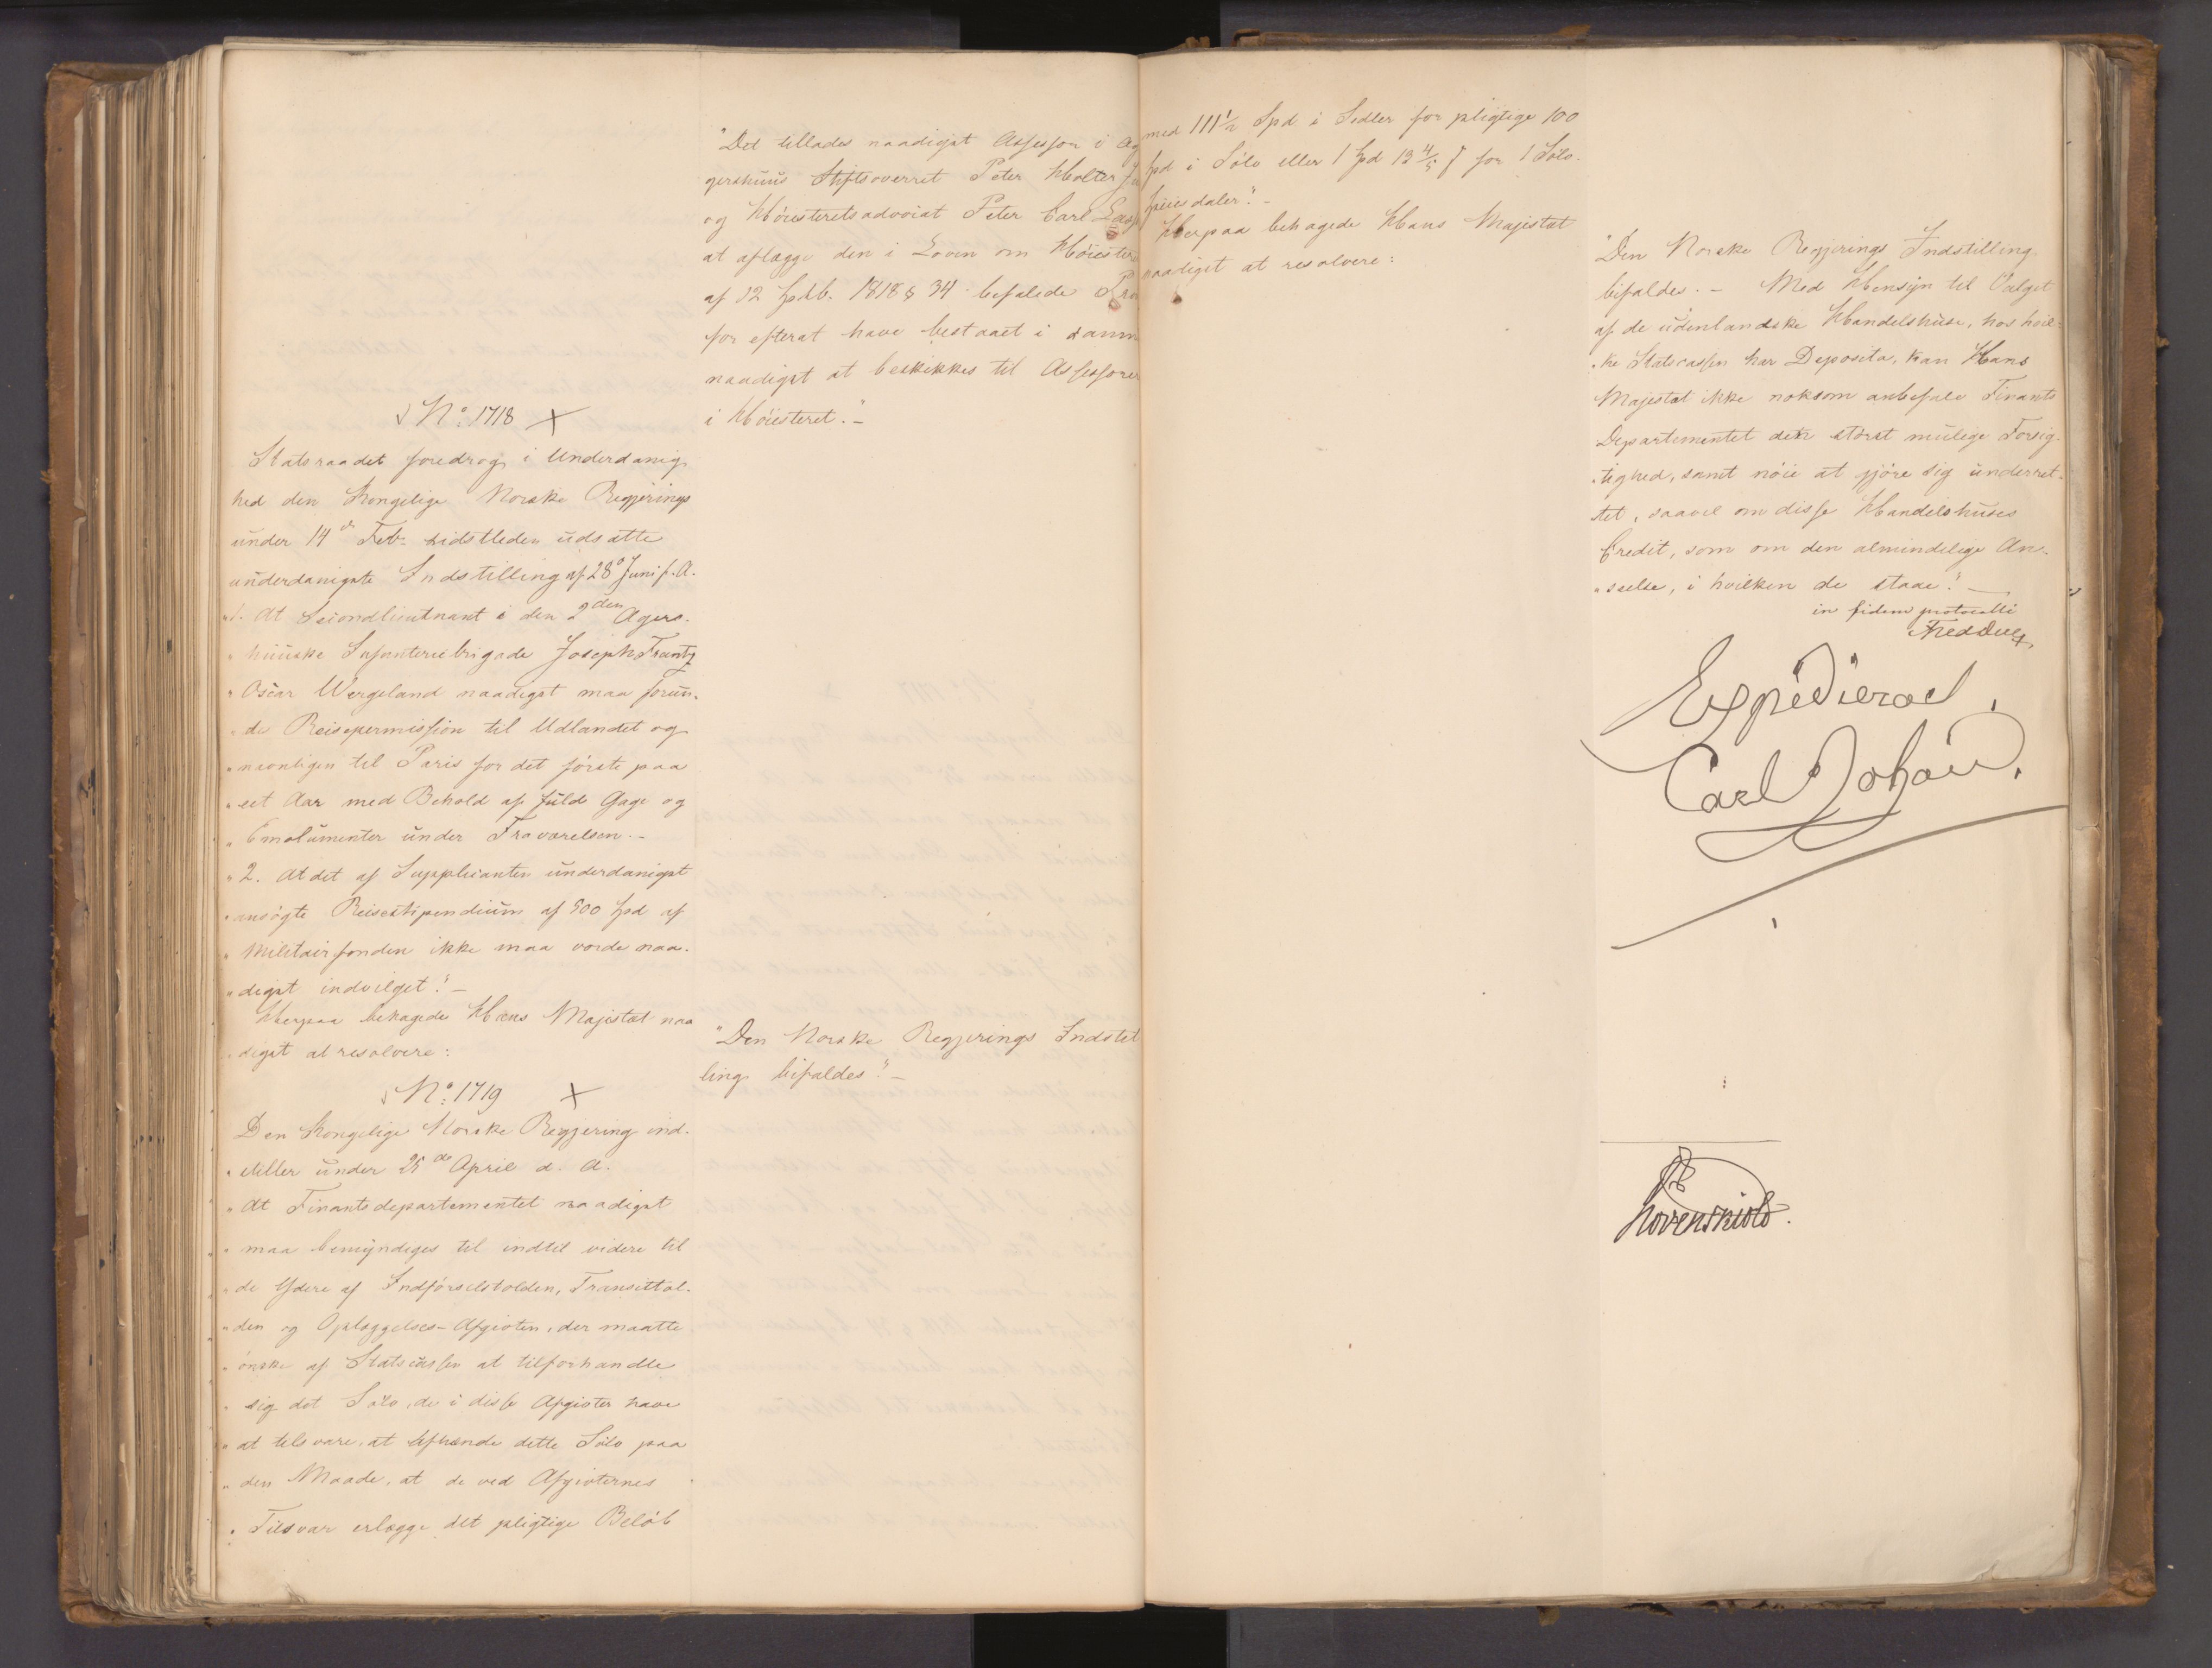 "Det tillades naadigst Assessor i Ag
gershuus Stiftsoverret Peter Holter
og Höiesteretsadvocat Peter Carl Lasf
at aflægge den i Loven om Höiester
af 12 Sptb. 1818 § 34 befalede Prø
for efterat have bestaaet i samm
naadigst at beskikkes til Assessorer
i Höiesteret." -
No: 1718 X
Statsraadet foredrog i Underdanig
hed den Kongelige Norske Regjerings
under 14de Feb. sidstleden udsatte
underdanigste Indstilling af 28de Juni f. A.
"1. At Secondlieutnant i den 2den Agers-
" huuske Infanteriebrigade Joseph Frantz
" Oscar Wergeland naadigst maa forun-
" de Reisepermission til Udlandet og
" navnligen til Paris for det förste paa
" eet Aar med Behold af fuld Gage og
" Emolumenter under Fraværelsen. -
" 2. At det af Supplicanten underdanigst
" ansögte Reisestipendium af 500 Spd af
" Militairfonden ikke maa vorde naa-
" digst indvilget." -
Herpaa behagede Hans Majestæt naa
digst at resolvere:
"Den Norske Regjerings Indstil
ling bifaldes." -
No: 1719 X
Den Kongelige Norske Regjering ind-
stiller under 25de April d. A.
" At Finantsdepartementet naadigst
" maa bemyndiges til indtil videre til
" de Ydere af Indförselstolden, Transittol-
" den og Oplæggelses-Afgivten, der maatte
" önske af Statscassen at tilforhandle
" sig det Sölv, de i disse Afgivter have
" at tilsvare, at afhænde dette Sölv paa
" den Maade, at de ved Afgivternes
" Tilsvar erlægge det pligtige Belöb
med 111 1/2 Spd i Sedler for pligtige 100
Spd i Sölv eller 1 Spd 13 4/5 ß for 1 Sölv-
speciesdaler." -
Herpaa behagede Hans Majestæt
naadigst at resolvere:
"Den Norske Regjerings Indstilling
bifaldes. - Med Hensyn til Valget
af de udenlandske Handelshuse, hos hvil-
ke Statscassen har Deposita, kan Hans
Majestæt ikke noksom anbefale Finants
Departementet den störst mulige Forsig-
tighed, samt nöie at gjöre sig underret-
tet, saavel om disse Handelshuses
Credit, som om den almindelige An-
seelse, i hvilken de staae." -
in fidem protocolli
Fred Due
Expedieras
Carl Johan
Lövenskiold.